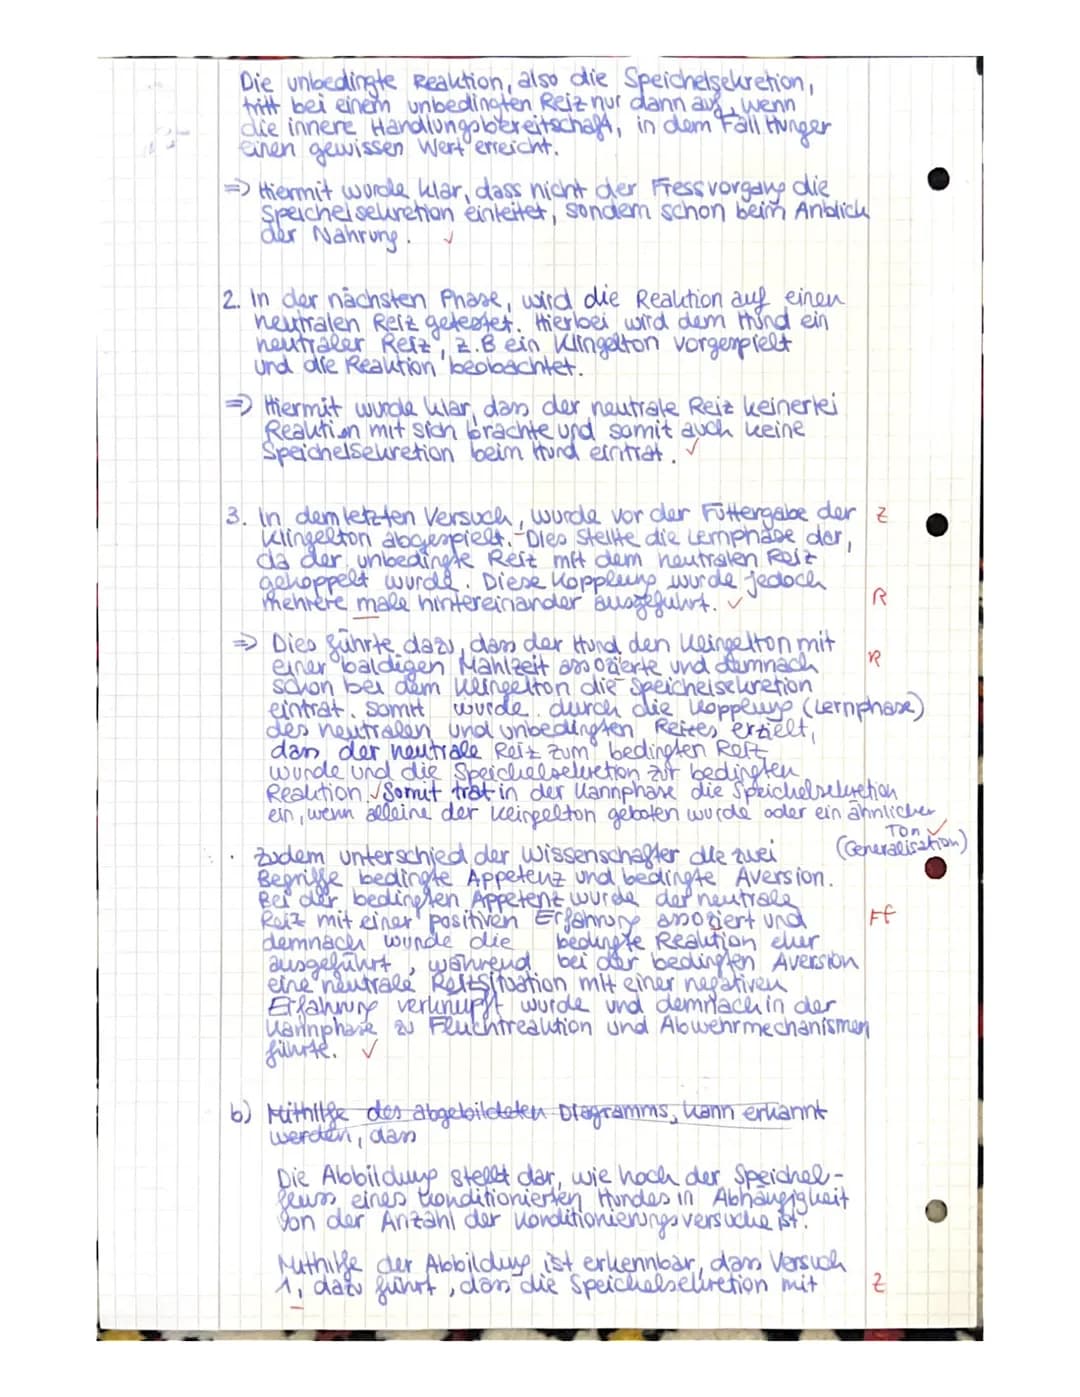 Die unbedingte Reaktion, also die Speichelsekretion,
tritt bei einem unbedingten Reiz nur dann auf, wenn
die innere Handlungsbereitschaft, in dem Fall Hunger
einen gewissen Wert erreicht.
=> Hiermit wurde klar, dass nicht der Fressvorgang die
Speichelsekretion einleitet, sondern schon beim Anblick
der Nahrung. ✓
2. In der nächsten Phase, wird die Reaktion auf einen
neutralen Reiz getestet. Hierbei wird dem Hund ein
neutraler Reiz, z.B ein Klingelton vorgespielt
und die Reaktion beobachtet.
=> Hiermit wurde klar, dass der neutrale Reiz keinerlei
Reaktion mit sich brachte und somit auch keine
Speichelsekretion beim Hund eintrat. ✓
3. In dem letzten Versuch, wurde vor der Futtergabe der Z
Klingelton abgespielt. Dies stellte die Lernphase dar,
da der unbedingte Reiz mit dem neutralen Reiz
gekoppelt wurde. Diese Kopplung wurde jedoch
mehrere male hintereinander ausgeführt. ✓ R
=> Dies führte dazu, dass der Hund den Klingelton mit
einer baldigen Mahlzeit assozierte und demnach R
schon bei dem Klingelton die Speichelsekretion
eintrat. Somit wurde durch die Kopplung (Lernphase)
des neutralen und unbedingten Reizes erzielt,
dass der neutrale Reiz zum bedingten Reiz
wurde und die Speichelsekretion zur bedingten
Reaktion. ✓ Somit trat in der Kannphase die Speichelsekretion
ein, wenn alleine der Klingelton geboten wurde oder ein ähnlicher
Ton ✓
(Generalisation)
Zudem unterschied der Wissenschafter die zwei
Begriffe bedingte Appetenz und bedingte Aversion.
Bei der bedingten Appetenz wurde der neutrale
Reiz mit einer positiven Erfahrung assoziert und Ff
demnach wurde die bedingte Reaktion eher
ausgeführt, während bei der bedingten Aversion
eine neutrale Reizsituation mit einer negativen
Erfahrung verknüpft wurde und demnach in der
Kannphase zu Fluchtreaktion und Abwehrmechanismen
führte. ✓
b) Mithilfe des abgebildeten Diagramms, kann erkannt
werden, dass
Die Abbildung stellt dar, wie hoch der Speichel-
fluss eines konditionierten Hundes in Abhängigkeit
von der Anzahl der Konditionierungsversuche ist.
Mithilfe der Abbildung ist erkennbar, dass Versuch
1, dazu führt, dass die Speichelsekretion mit Z